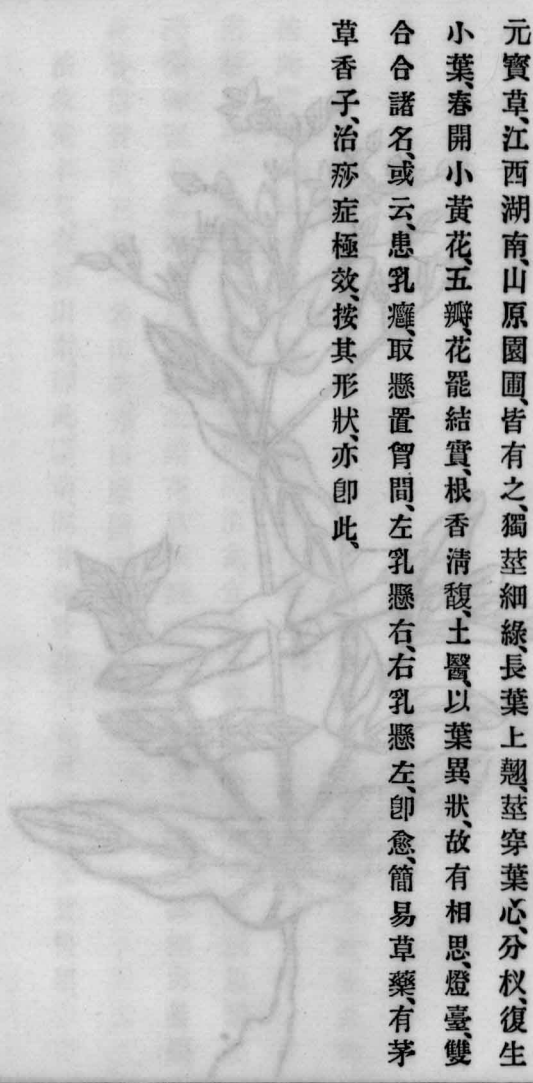 元寶草、江西湖南、山原園圃、皆有之、獨莖細綠、長葉上翹、莖穿葉心、分杈、復生
小葉、春開小黃花、五瓣、花罷結實、根香清馥、土醫、以葉異狀、故有相思、燈臺、雙
合合諸名、或云、患乳癰、取懸置胷間、左乳懸右、右乳懸左、卽愈、簡易草藥、有茅
草香子、治痧症極效、按其形狀、亦卽此、